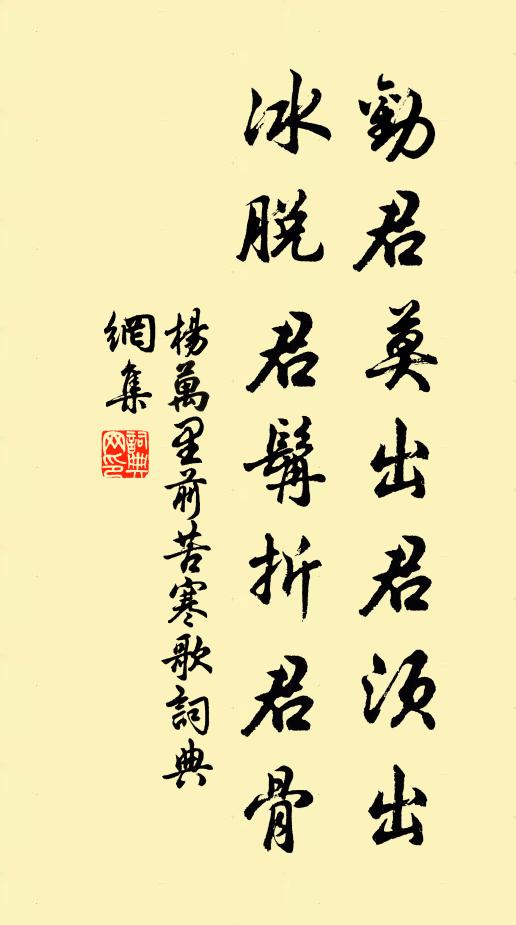 勸君莫出君須出
冰脫君髯折君骨
楊萬里前苦寒歌詞典
網集
詞典網印